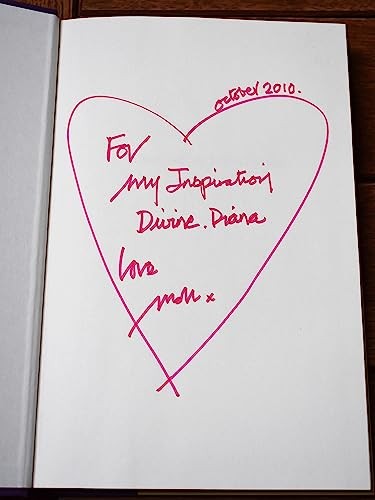 october 2010.
For
my Inspiration
Divine. Diana
Love
Moll x